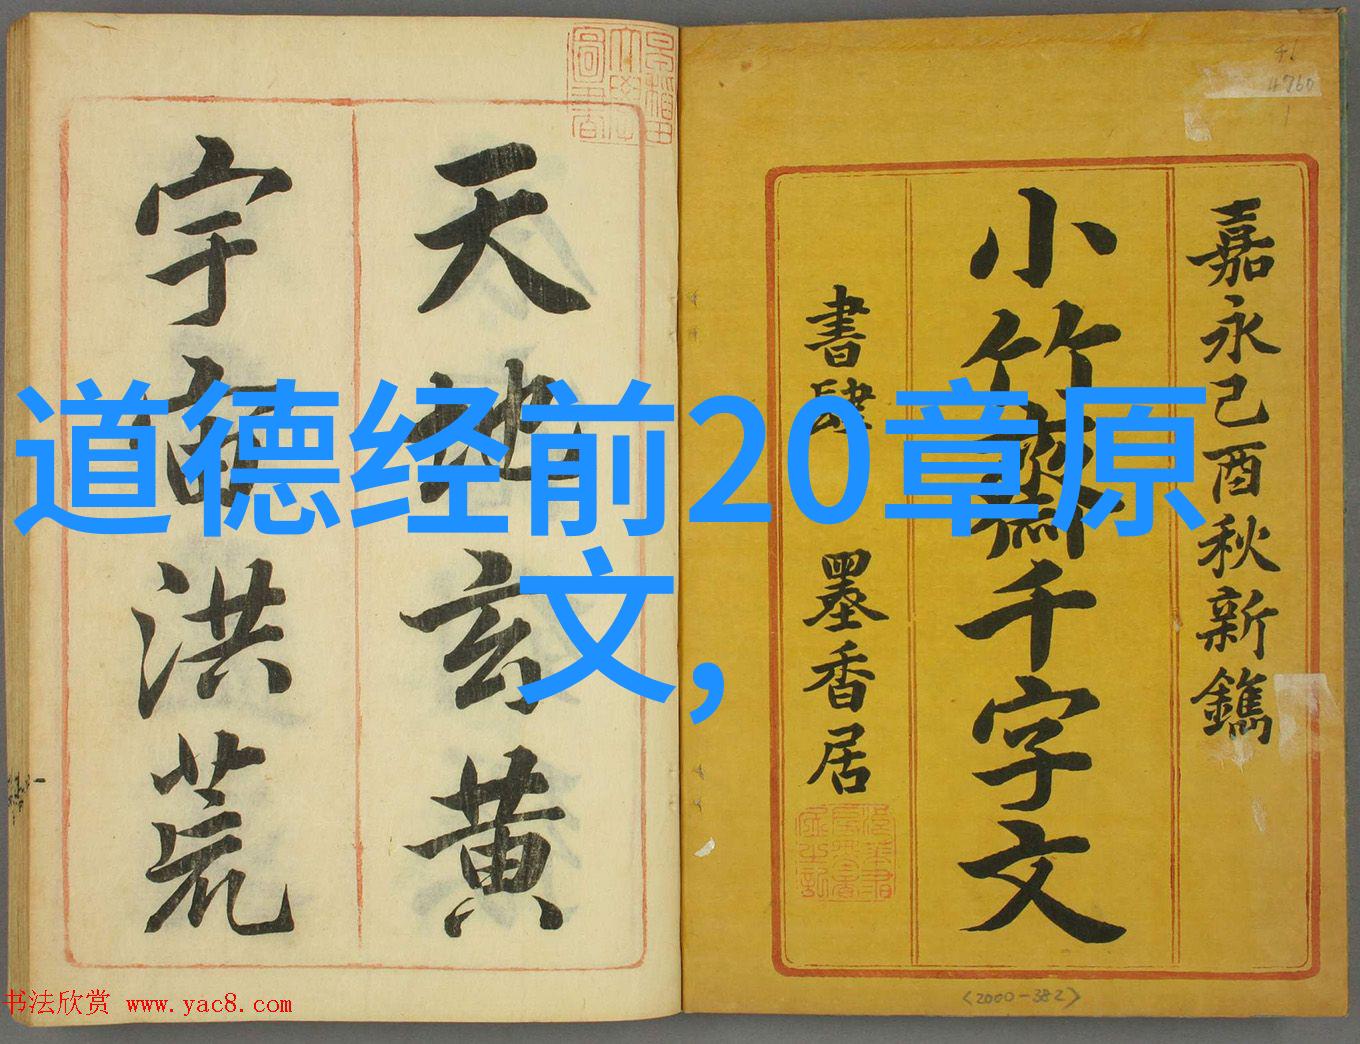 道德经前20章原
文,
嘉永己酉秋新鐫
小竹齋千字文
書肆 墨香居
天地玄黄
宇宙洪荒
4760
<2000-382>
书法欣赏 www.yac8.com